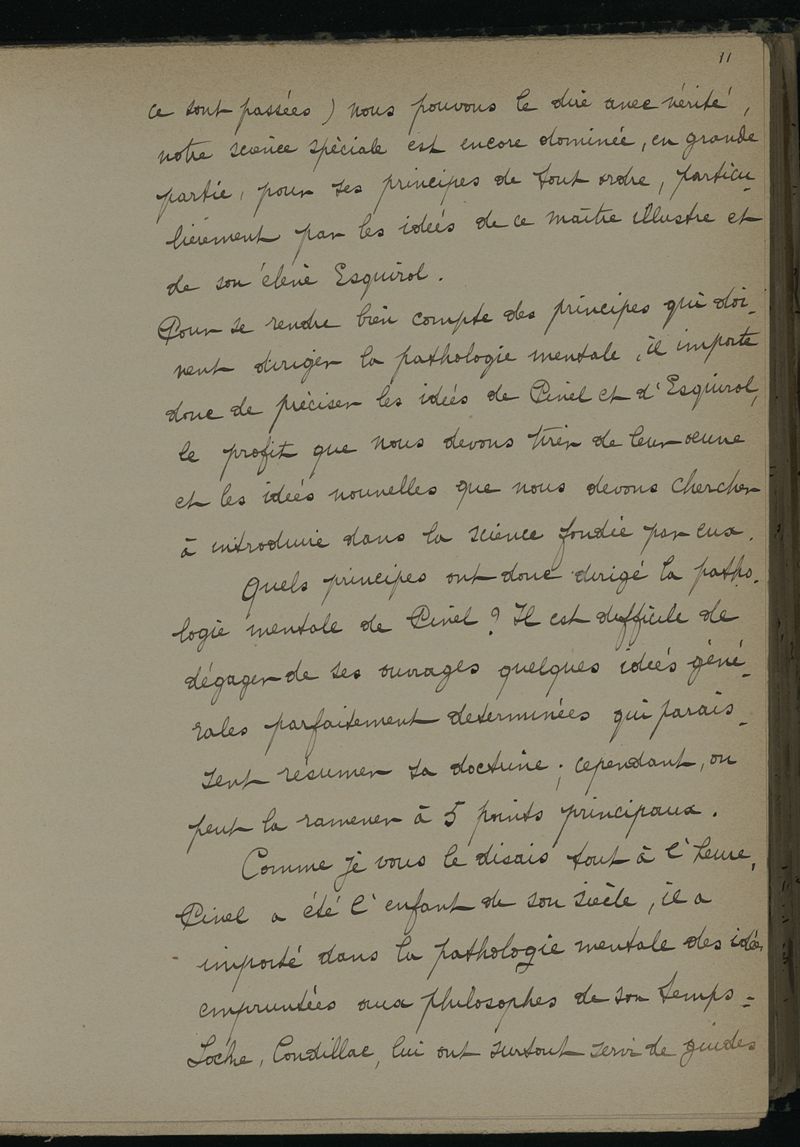 11
ce sont passées) nous pouvons le dire avec vérité,
notre science spéciale est encore dominée, en grande
partie, pour ses principes de tout ordre, particu-
lièrement par les idées de ce maître illustre et
de son élève Esquirol.
Pour se rendre bien compte des principes qui doi-
vent diriger la pathologie mentale, il importe
donc de préciser les idées de Pinel et d'Esquirol,
le profit que nous devons tirer de leur oeuvre
et les idées nouvelles que nous devons chercher
à introduire dans la science fondée par eux.
Quels principes ont donc dirigé la patho-
logie mentale de Pinel ? Il est difficile de
dégager de ses ouvrages quelques idées géné-
rales parfaitement determinées qui parais-
sent résumer sa doctrine ; cependant, on
peut la ramener à 5 points principaux.
Comme je vous le disais tout à l'heure,
Pinel a été l'enfant de son siècle, il a
importé dans la pathologie mentale des idées
empruntées aux philosophes de son temps -
Locke, Condillac, lui ont surtout servi de guides